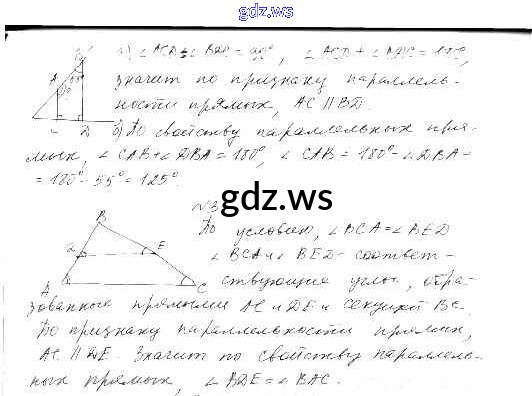 gdz.ws
а) ∠ACD = ∠BDC = 90°, ∠ACD + ∠BDC = 180°,
значит по признаку параллель-
ности прямых, AC || BD.
б) По свойству параллельных пря-
мых, ∠CAB + ∠DBA = 180°, ∠CAB = 180° - ∠DBA =
= 180° - 55° = 125°.
gdz.ws
№3
По условию, ∠BCA = ∠BED
∠BCA и ∠BED - соответ-
ствующие углы, обра-
зованные прямыми AC и DE и секущей BC.
По признаку параллельности прямых,
AC || DE. Значит по свойству параллель-
ных прямых, ∠BDE = ∠BAC.